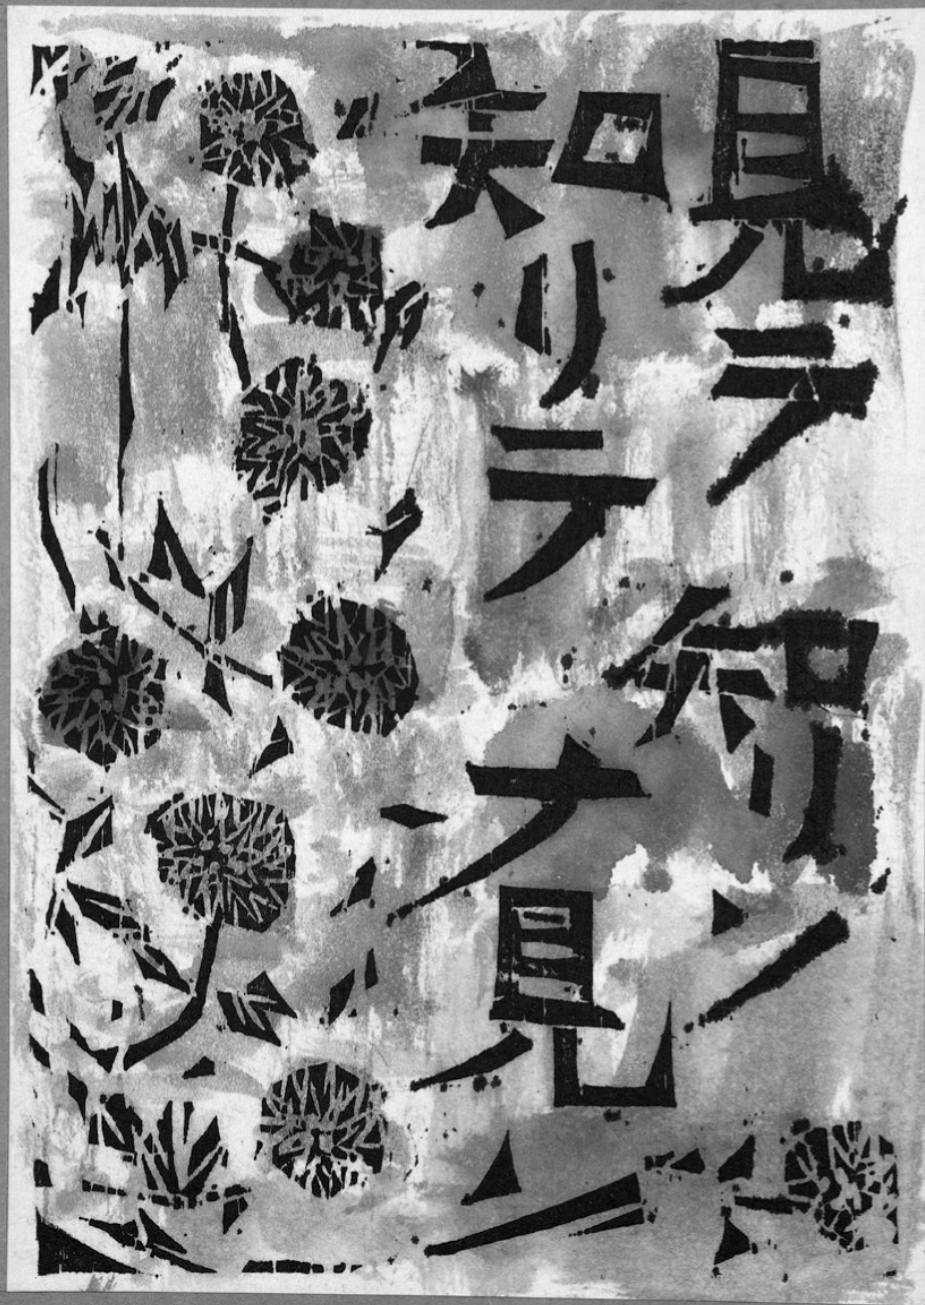 見テ知リソ
知リテナ見ソ